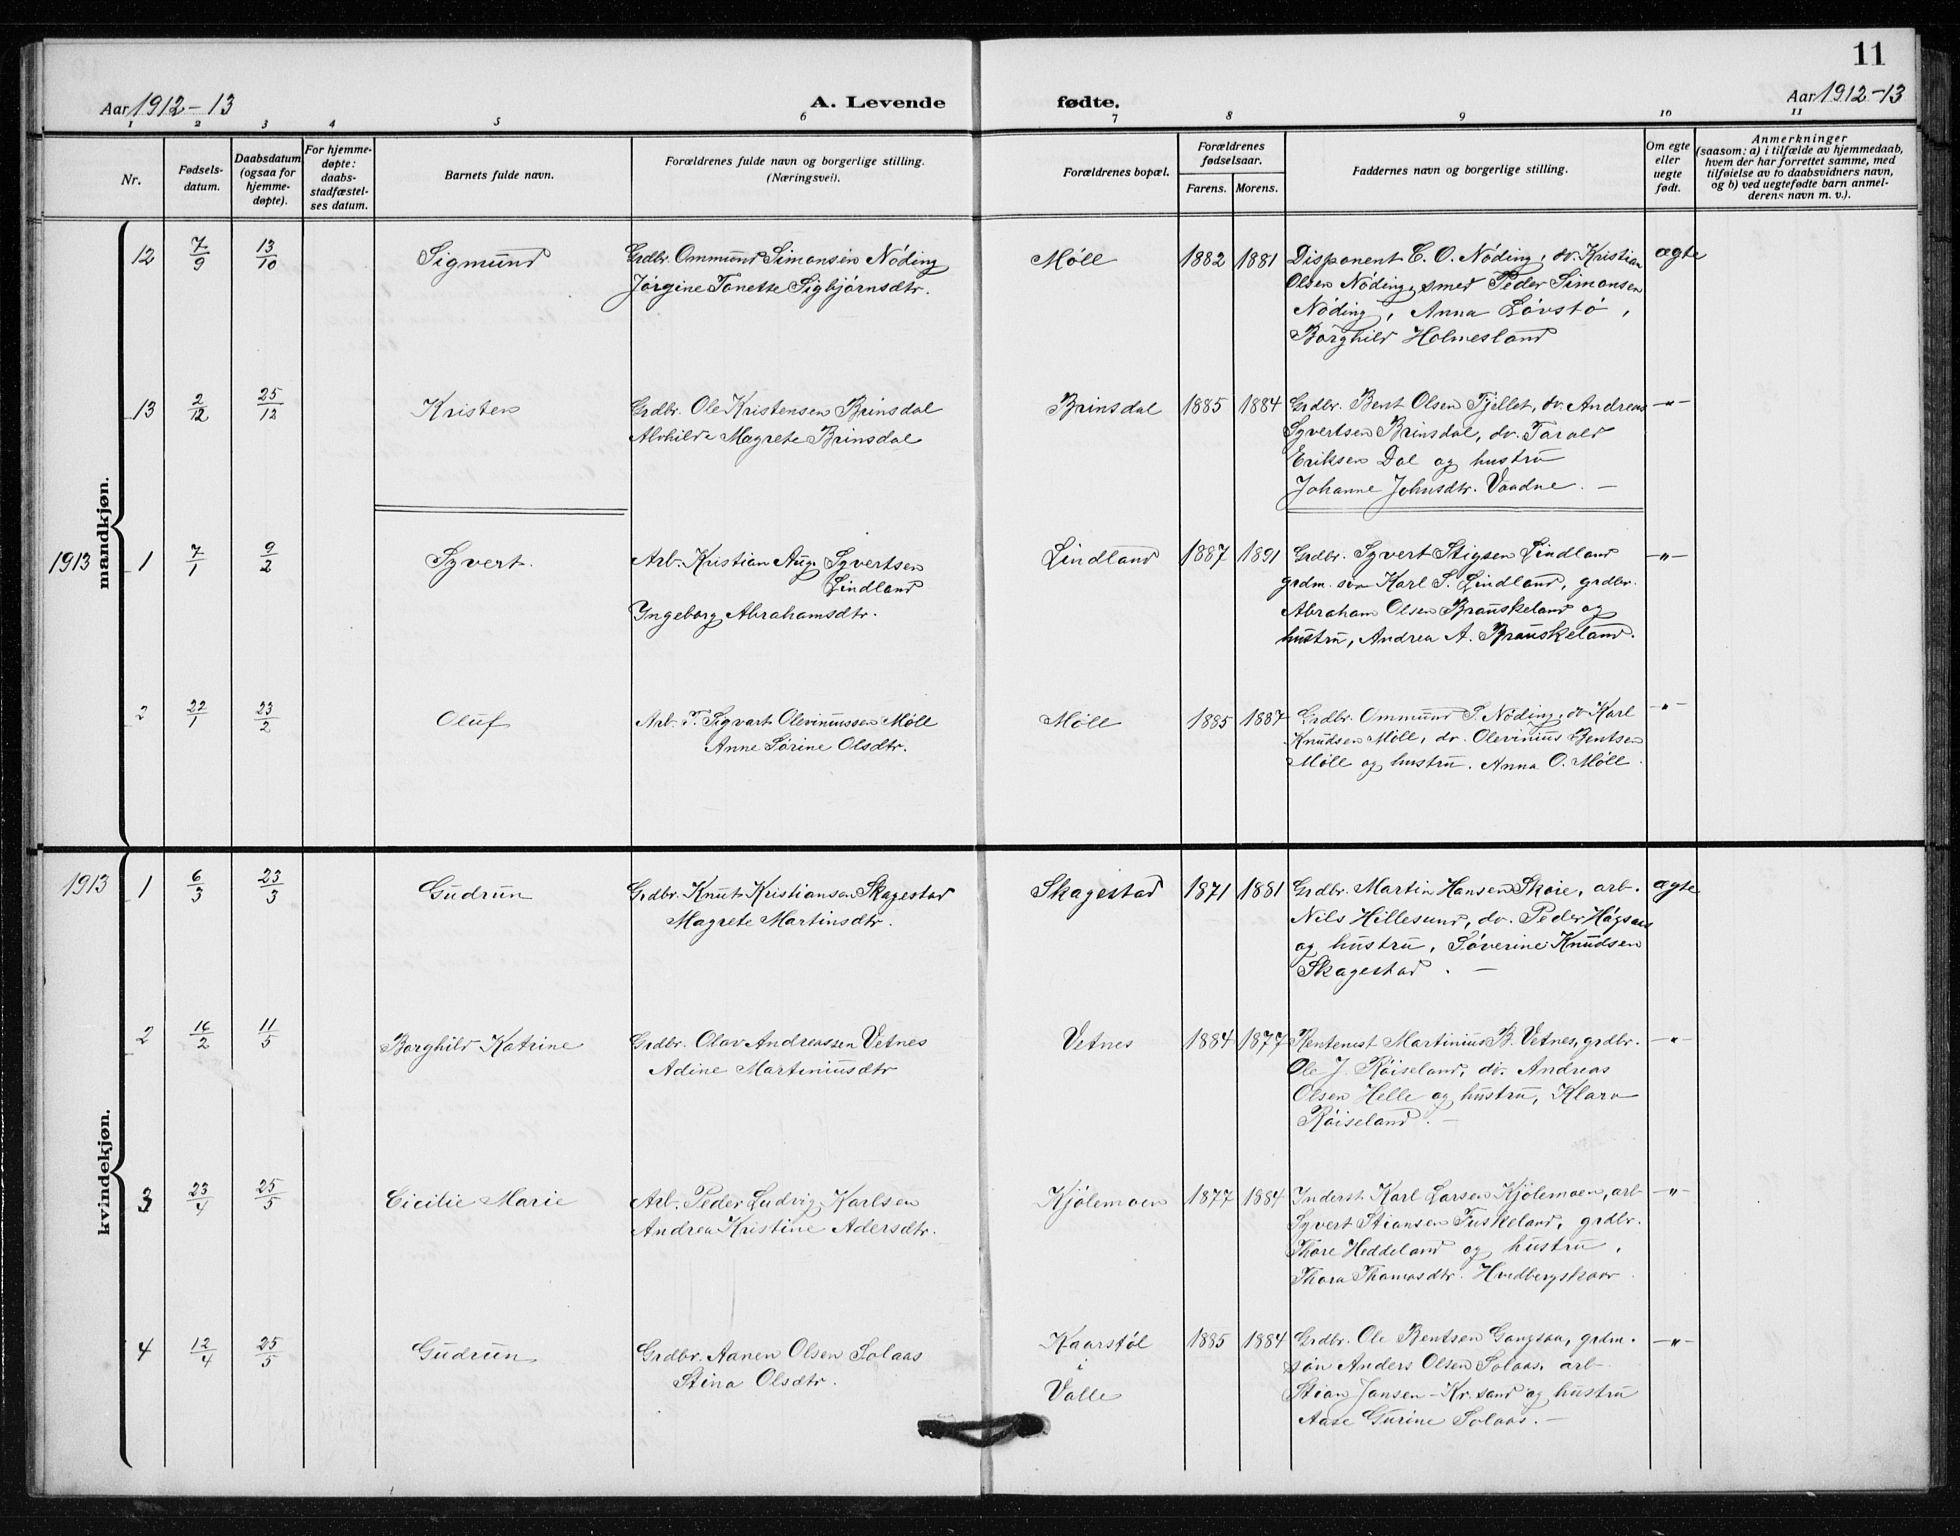 11
Aar 1912-13
A. Levende fødte.
Aar 1912-13
1 2 3 4 5 6 7 8 9 10 11
Nr.
Fødsels-
datum.
Daabsdatum
(ogsaa for
hjemme-
døpte).
For hjemme-
døpte:
daabs-
stadfæstel-
ses datum.
Barnets fulde navn.
Forældrenes fulde navn og borgerlige stilling.
(Næringsvei).
Forældrenes bopæl.
Forældrenes
fødselsaar.
Farens. Morens.
Faddernes navn og borgerlige stilling.
Om egte
eller
uegte
født.
Anmerkninger
(saasom: a) i tilfælde av hjemmedaab,
hvem der har forrettet samme, med
tilføielse av to daabsvidners navn,
og b) ved uegtefødte barn anmel-
derens navn m. v.).
mandkjøn.
12 7/9 13/10 Sigmund Grdbr. Ommund Simonsen Nöding Möll 1882 1881 Disponent C. O. Nöding, do. Kristian ægte
Jørgine Tonette Sigbjørnsdtr. Olsen Nöding, smed Peder Simonsen
Nöding, Anna Lövstö,
Borghild Holmesland
13 2/12 25/12 Kristen Grdbr. Ole Kristensen Brinsdal Brinsdal 1885 1884 Grdbr. Bent Olsen Fjellet, do. Andreas -"-
Alvhilde Magrete Brinsdal Syvertsen Brinsdal, do. Tarald
Eriksen Dal og hustru
Johanne Johnsdtr. Vaadne. —
1913 1 7/1 9/2 Syvert. Arb. Kristian Aug. Syvertsen Lindland 1887 1891 Grdbr. Syvert Stigsen Lindland -"-
Lindland grdm. søn Karl S. Lindland, grdbr.
Ingeborg Abrahamsdtr. Abraham Olsen Brauskeland og
hustru, Andrea A. Brauskeland.
2 22/1 23/2 Oluf Arb. T. Sigvart Oleviniussen Möll Möll 1885 1887 Grdbr. Ommund S. Nöding, do Karl -"-
Anne Sörine Olsdtr. Knudsen Möll, do. Olevinius Bentsen
Möll og hustru. Anna O. Möll.
kvindekjøn.
1913 1 6/3 23/3 Gudrun Grdbr. Knut Kristiansen Skagestad Skagestad 1871 1881 Grdbr. Martin Hansen Skoie, arb. ægte
Magrete Martinsdtr. Nils Hillesund, do. Peder Högsaas
og hustru, Söverine Knudsen
Skagestad. —
2 16/2 11/5 Borghild Katrine Grdbr. Olav Andreassen Vetnes Vetnes 1884 1877 Rentenist Martinius B. Vetnes, grdbr. -"-
Adine Martiniusdtr Ole J. Röiseland, do. Andreas
Olsen Helle og hustru, Klara
Röiseland. —
3 23/4 25/5 Cicilie Marie Arb. Peder Ludvig Karlsen Kjölemoen 1877 1884 Inderst Karl Larsen Kjölemoen, arb -"-
Andrea Kristine Adersdtr. Syvert Stiansen Fuskeland, grdbr.
Thore Heddeland og hustru,
Thora Thomasdtr. Hvidbergskaar
4 12/4 25/5 Gudrun Grdbr. Aanen Olsen Solaas Kaarstöl 1885 1884 Grdbr. Ole Bentsen Gangsaa, grdm. -"-
Stina Olsdtr. i søn Anders Olsen Solaas, arb.
Valle Stian Jansen - Kr.sand og hustru
Aase Gurine Solaas. —